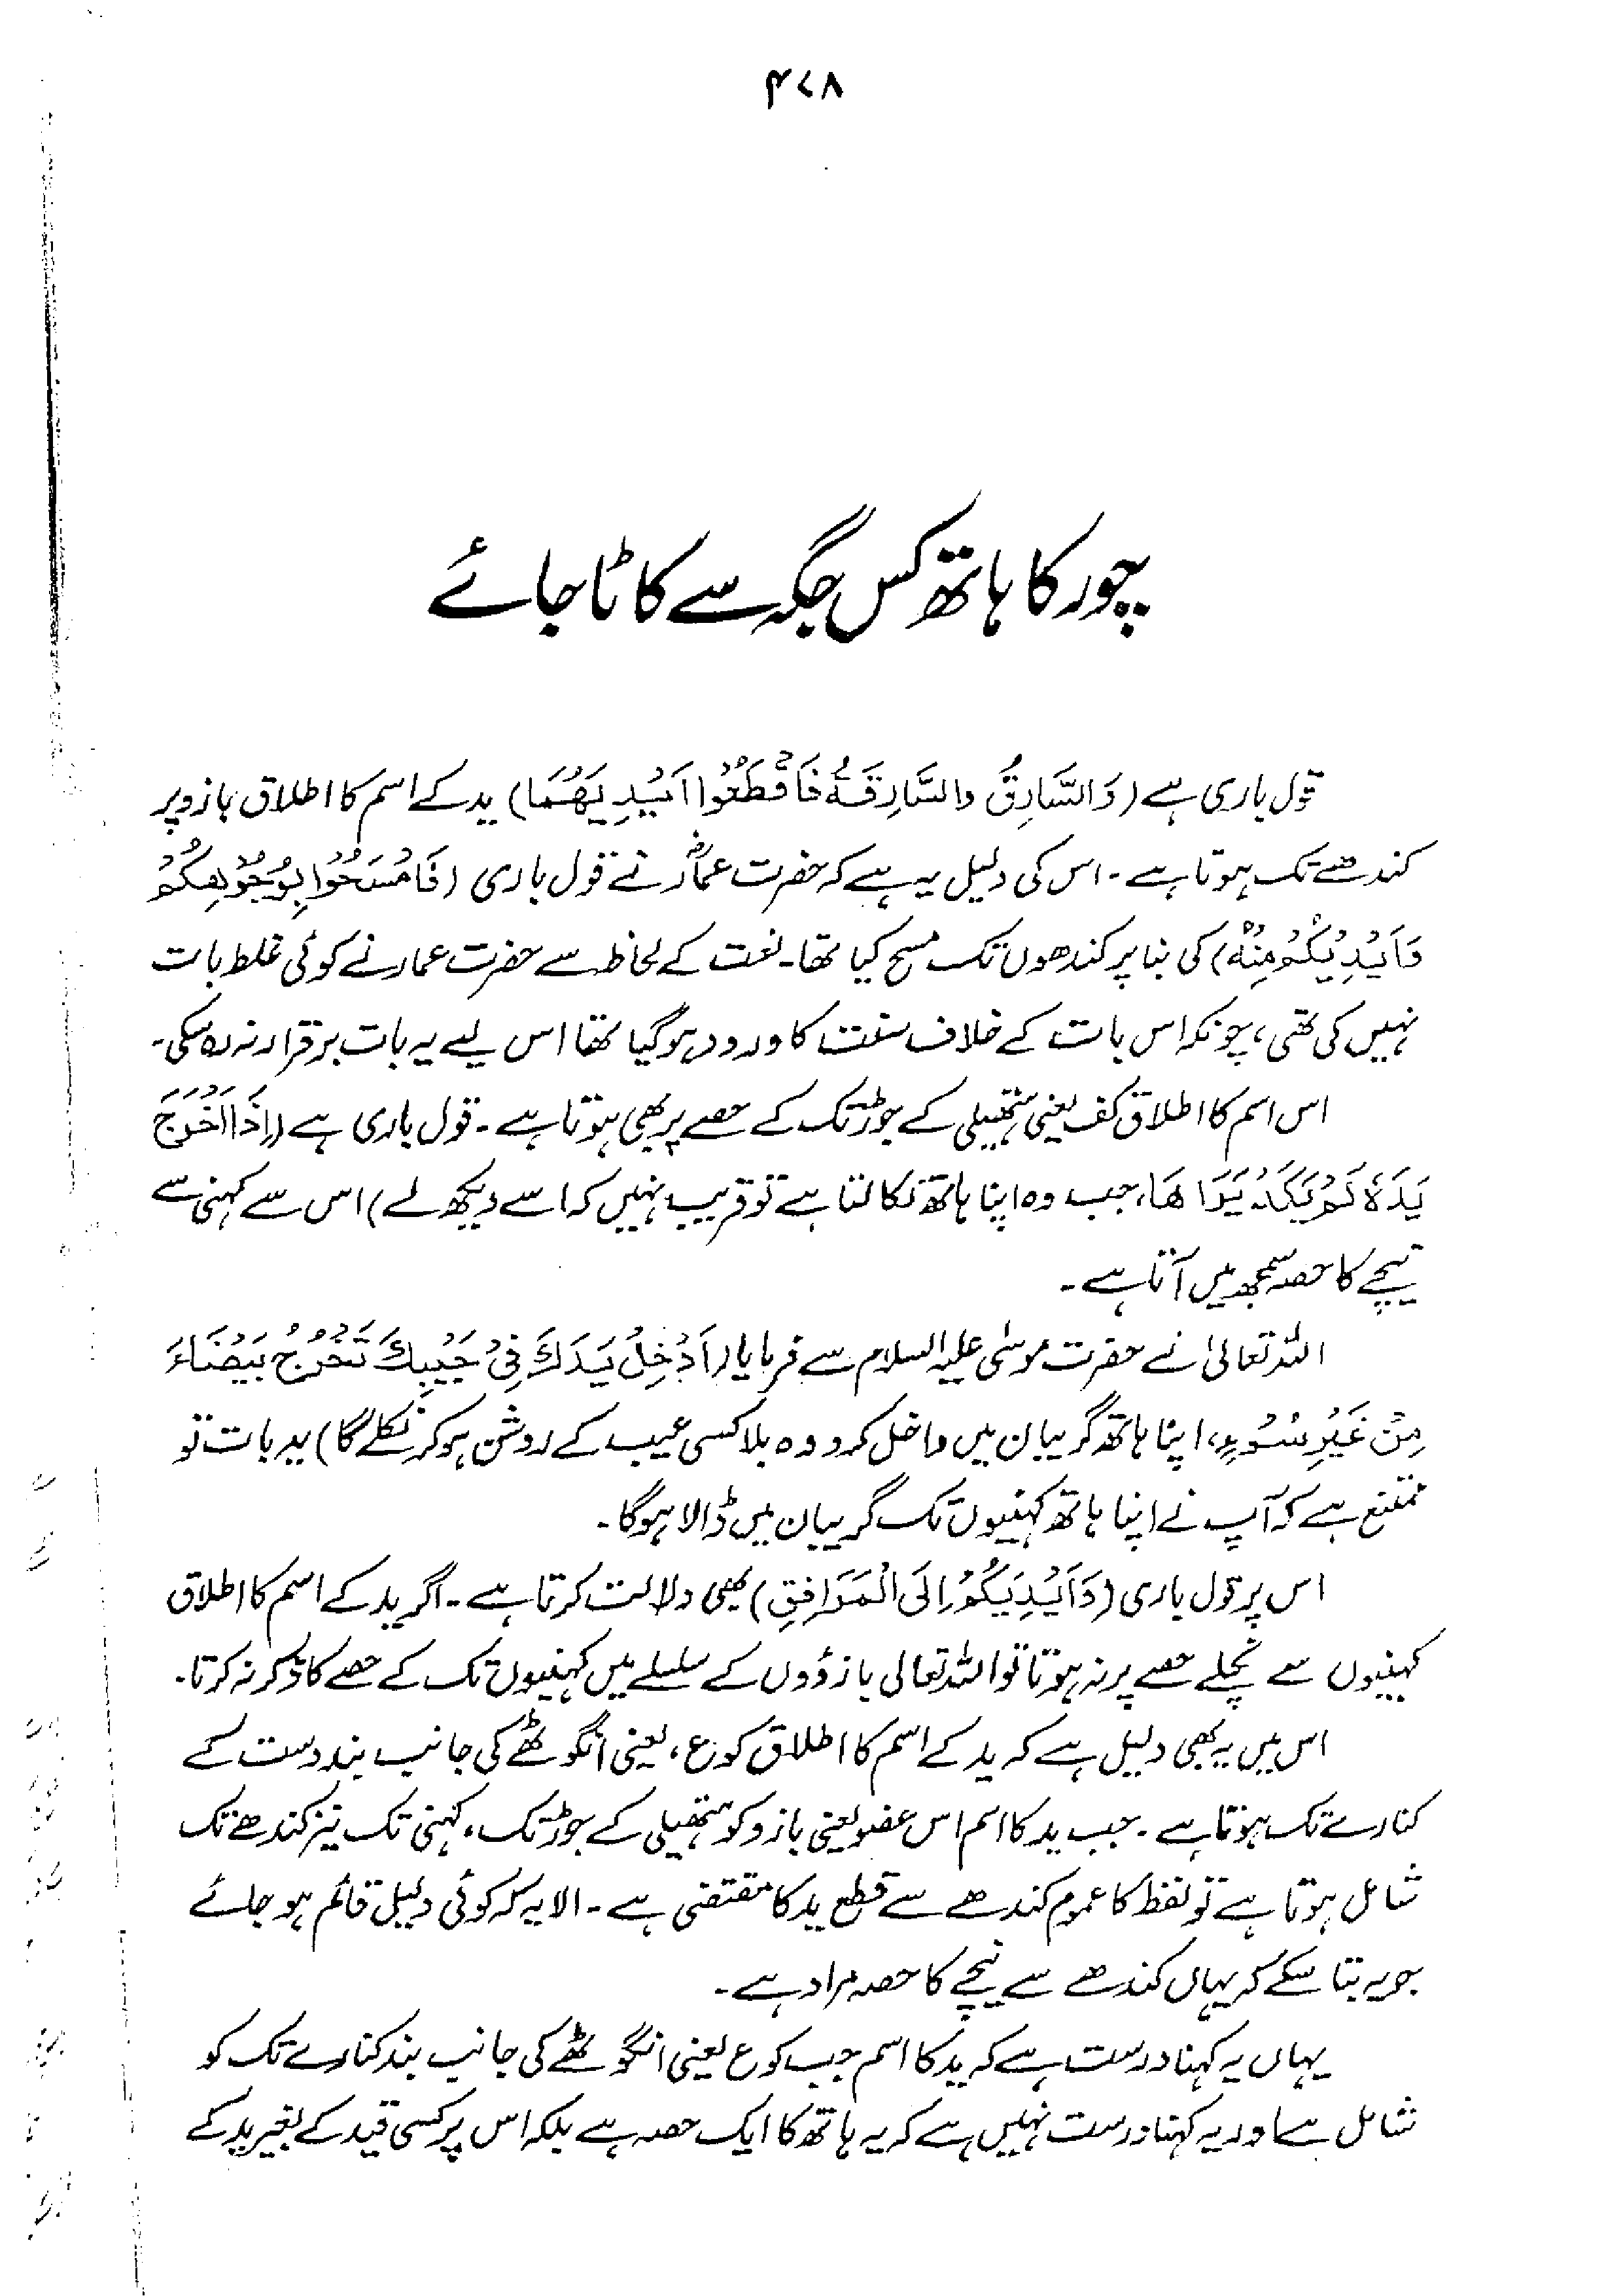 ۴۷۸
چور کا ہاتھ کس جگہ سے کاٹا جائے
قول باری ہے (وَالسَّارِقُ وَالسَّارِقَةُ فَاقْطَعُوْا اَيْدِيَهُمَا) ید کے اسم کا اطلاق بازو پر
کندھے تک ہوتا ہے۔ اس کی دلیل یہ ہے کہ حضرت عمارؓ نے قول باری (فَامْسَحُوْا بِوُجُوْهِكُمْ
وَاَيْدِيْكُمْ مِنْهُ) کی بنا پر کندھوں تک مسح کیا تھا۔ لغت کے لحاظ سے حضرت عمار نے کوئی غلط بات
نہیں کی تھی، چونکہ اس بات کے خلاف سنت کا ورود ہوگیا تھا اس لیے یہ بات برقرار نہ رہ سکی۔
اس اسم کا اطلاق کف یعنی ہتھیلی کے جوڑ تک کے حصے پر بھی ہوتا ہے۔ قول باری ہے (اِذَا اَخْرَجَ
يَدَهٗ لَمْ يَكَدْ يَرَاهَا، جب وہ اپنا ہاتھ نکالتا ہے تو قریب نہیں کہ اسے دیکھ لے) اس سے کہنی سے
نیچے کا حصہ سمجھ میں آتا ہے۔
اللہ تعالیٰ نے حضرت موسیٰ علیہ السلام سے فرمایا (اَدْخِلْ يَدَكَ فِيْ جَيْبِكَ تَخْرُجْ بَيْضَاءَ
مِنْ غَيْرِ سُوْءٍ، اپنا ہاتھ گریبان میں داخل کرو وہ بلا کسی عیب کے روشن ہو کر نکلے گا) یہ بات تو
ممتنع ہے کہ آپ نے اپنا ہاتھ کہنیوں تک گریبان میں ڈالا ہوگا۔
اس پر قول باری (وَاَيْدِيَكُمْ اِلَى الْمَرَافِقِ) بھی دلالت کرتا ہے۔ اگر ید کے اسم کا اطلاق
کہنیوں سے نچلے حصے پر نہ ہوتا تو اللہ تعالی بازوؤں کے سلسلے میں کہنیوں تک کے حصے کا ذکر نہ کرتا۔
اس میں یہ بھی دلیل ہے کہ ید کے اسم کا اطلاق کوع، یعنی انگوٹھے کی جانب بند دست کے
کنارے تک ہوتا ہے۔ جب ید کا اسم اس عضو یعنی بازو کو ہتھیلی کے جوڑ تک، کہنی تک نیز کندھے تک
شامل ہوتا ہے تو لفظ کا عموم کندھے سے قطع ید کا مقتضی ہے۔ الا یہ کہ کوئی دلیل قائم ہو جائے
جو یہ بتا سکے کہ یہاں کندھے سے نیچے کا حصہ مراد ہے۔
یہاں یہ کہنا درست ہے کہ ید کا اسم جب کوع یعنی انگوٹھے کی جانب بند کنارے تک کو
شامل ہے اور یہ کہنا درست نہیں ہے کہ یہ ہاتھ کا ایک حصہ ہے بلکہ اس پر کسی قید کے بغیر ید کے